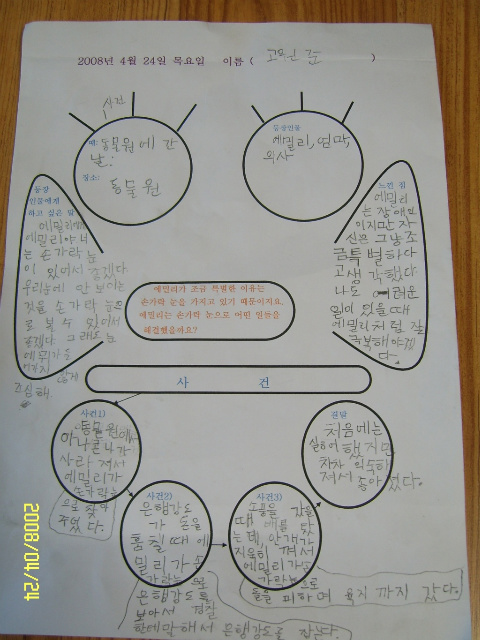 2008년 4월 24일 목요일 이름 ( 고유난 준 )
사건
때: 동물원에 간
날:
장소: 동물원
등장인물
에밀리, 엄마,
의사
등장
인물에게
하고 싶은 말
에밀리에게
에밀리야 너
는 손가락 눈
이 있어서 좋겠다
우리눈에 안 보이는
것을 손가락 눈으
로 볼 수 있어서
좋겠다 그래도 눈
조심해.
느낀 점
에밀리
는 장애인
이지만 자
신은 그냥 조
금 특별하다
고 생각했다
나도 어려운
일이 있을때
에밀리처럼 잘
극복해야겠
다.
에밀리가 조금 특별한 이유는
손가락 눈을 가지고 있기 때문이지요.
에밀리는 손가락 눈으로 어떤 일들을
해결했을까요?
사 건
사건1)
동물원에서
아나콘다가
사라져서
에밀리가
손가락눈
으로 찾아
주었다.
사건2)
은행강도
가 돈을
훔칠때 에
밀리가 손
가락눈으로
은행강도를
보아서 경찰
한테말해서 은행강도를 잡았다.
사건3)
때 배를 탔
는데, 안개가
지욱히 껴서
에밀리가 손
가락눈으로
돌을 피하며 육지까지 갔다.
결말
처음에는
싫어했지만
차차 익숙하
져서 좋아졌다.
2008/04/24